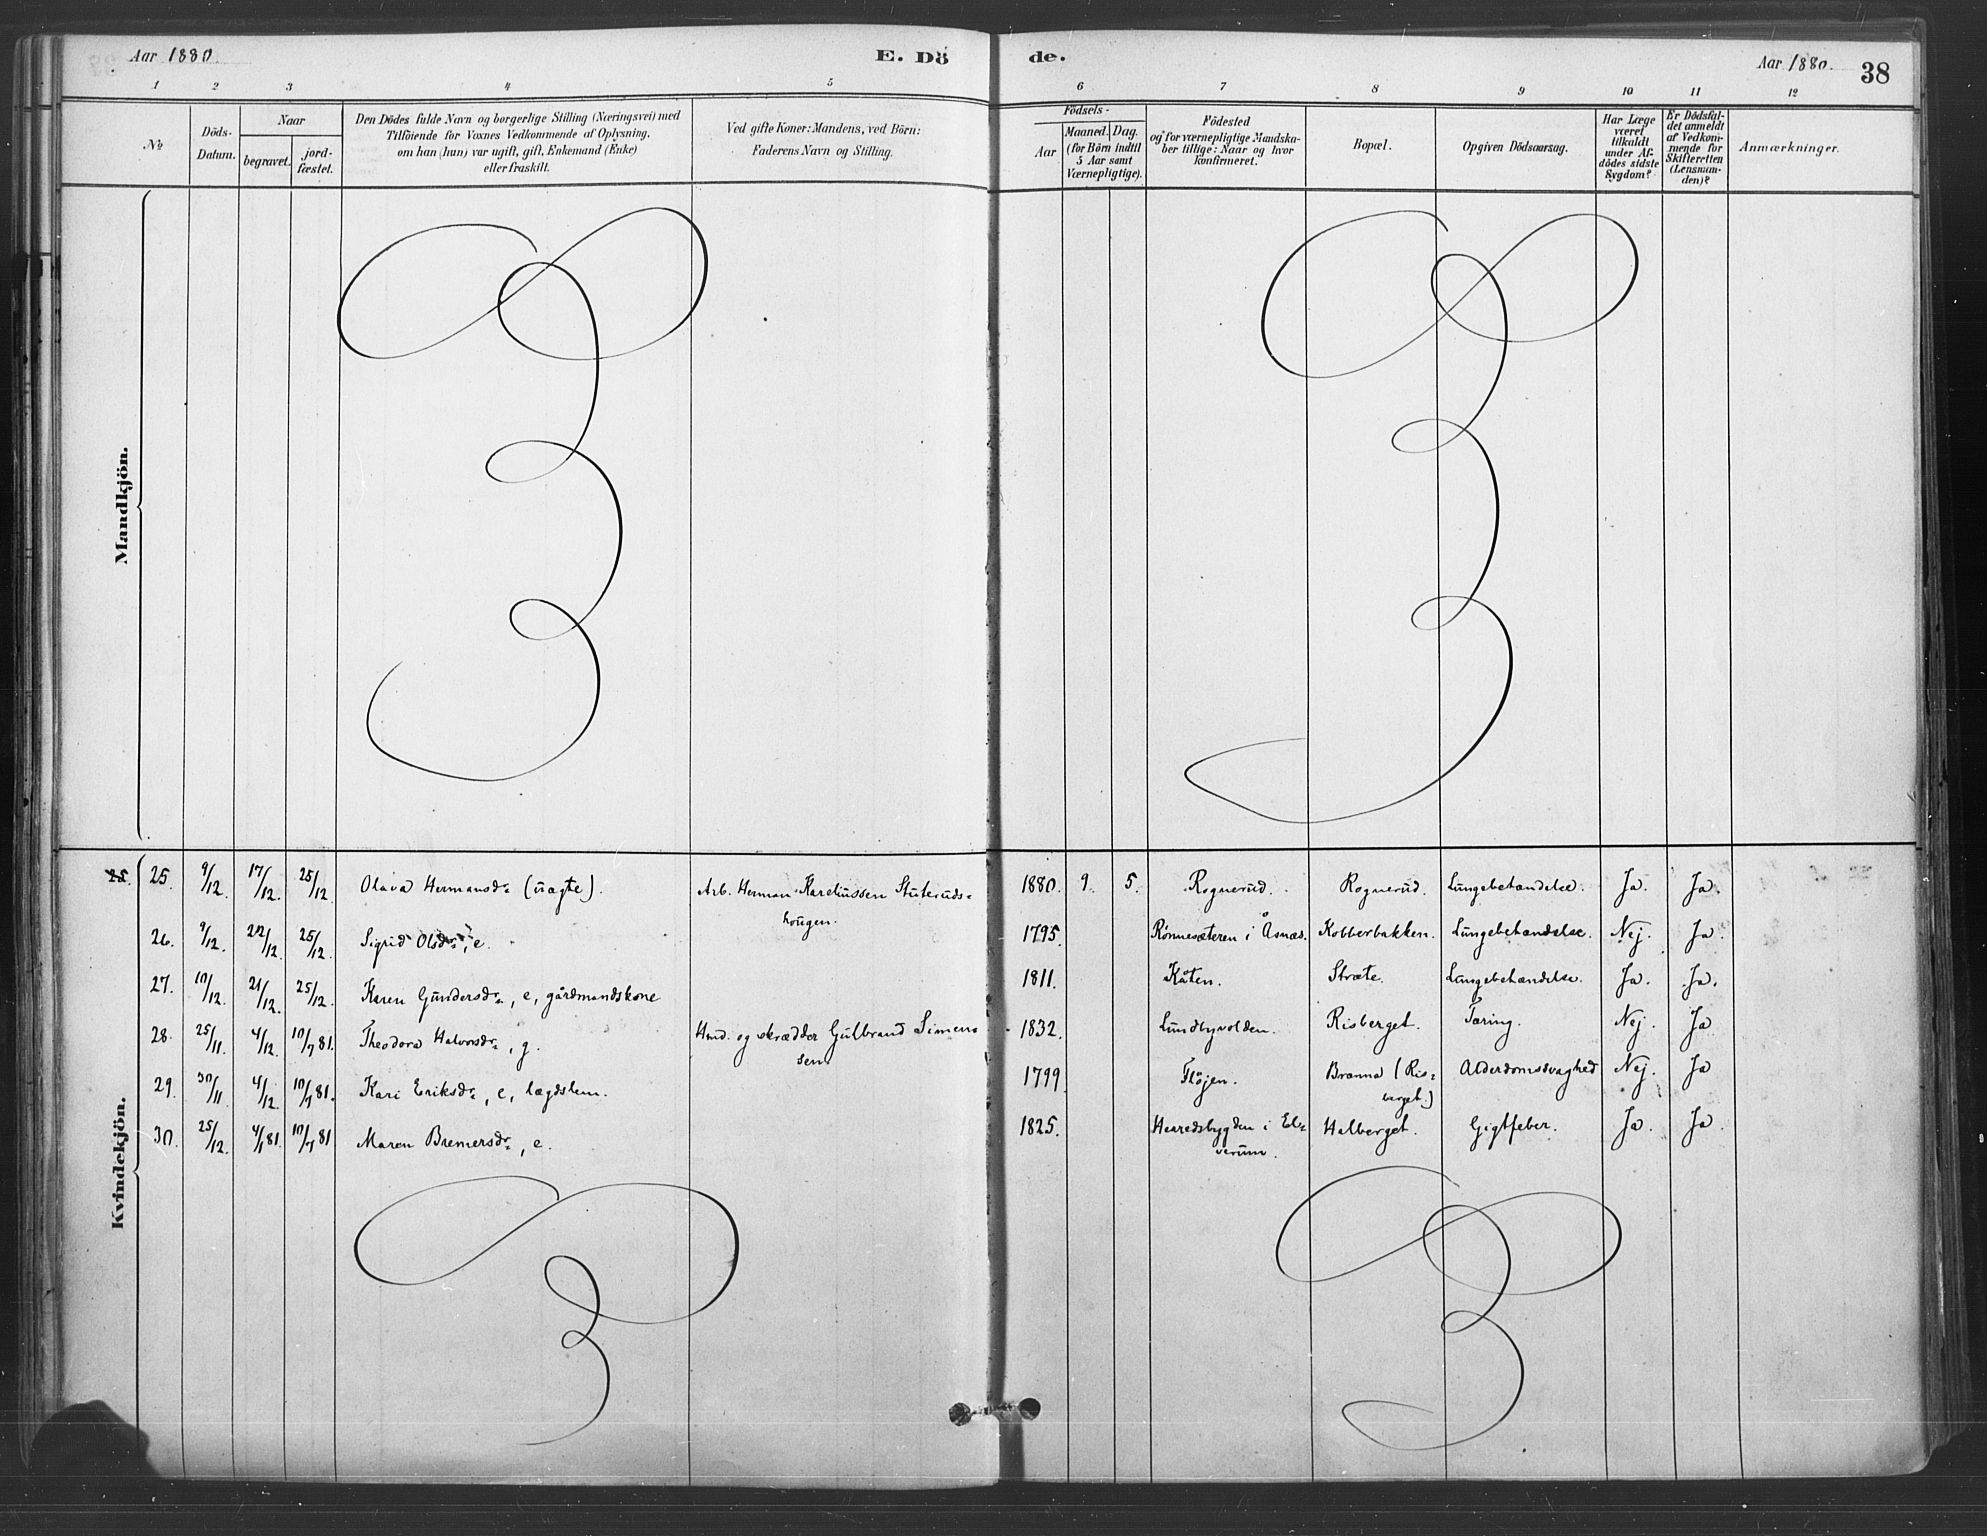 Aar 1880.
E. Dö
de.
Aar 1880.
38
1 2 3 4 5
6 7 8 9 10 11 12
No
Döds-Datum.
Naar
begravet.
jord-fæstet.
Den Dödes fulde Navn og borgerlige Stilling (Næringsvei) med
Tilföiende for Voxnes Vedkommende af Oplysning,
om han (hun) var ugift, gift, Enkemand (Enke)
eller fraskilt.
Ved gifte Koner: Mandens, ved Börn:
Faderens Navn og Stilling.
Födsels-
Aar
Maaned. Dag.
(for Börn indtil
5 Aar samt
Værnepligtige).
Födested
og for værnepligtige Mandska-
ber tillige: Naar og hvor
konfirmeret.
Bopæl.
Opgiven Dödsaarsag.
Har Læge
været
tilkaldt
under Af-
dödes sidste
Sygdom?
Er Dödsfal-
det anmeldt
af Vedkom-
mende for
Skifteretten
(Lensman-
den)?
Anmærkninger.
Mandkjön.
Kvindekjön.
25. 25. 9/12. 17/12. 25/12. Olava Hermansdr (uægte). Arb. Herman Kareliussen Stuteruds-
hougen. 1880. 9. 5. Rognerud. Rognerud. Lungebetændelse. Ja. Ja.
26. 9/12. 22/12. 25/12. Sigrid Olsdr, e. 1795. Rönnesæteren i Åsnæs. Kobberbakken. Lungebetændelse. Nej. Ja.
27. 10/12. 21/12. 25/12. Karen Gundersdr, e, gårdmandskone 1811. Kåten. Stræte. Lungebetændelse. Ja. Ja.
28. 25/11. 4/12. 10/7 81. Theodora Halvorsdr, g. Hmd. og skrædder Gulbrand Simen-
sen 1832. Lundbyvolden. Risberget. Tæring. Nej. Ja
29. 30/11. 4/12. 10/7 81. Kari Eriksdr, e, lægdslem. 1799. Fløjen. Brænna (Ris-
berget.) Alderdomssvaghed Nej. Ja
30. 25/12. 4/1 81. 10/7 81 Maren Bremersdr, e. 1825. Heeredsbygden i El-
verum. Halberget. Gigtfeber. Ja. Ja